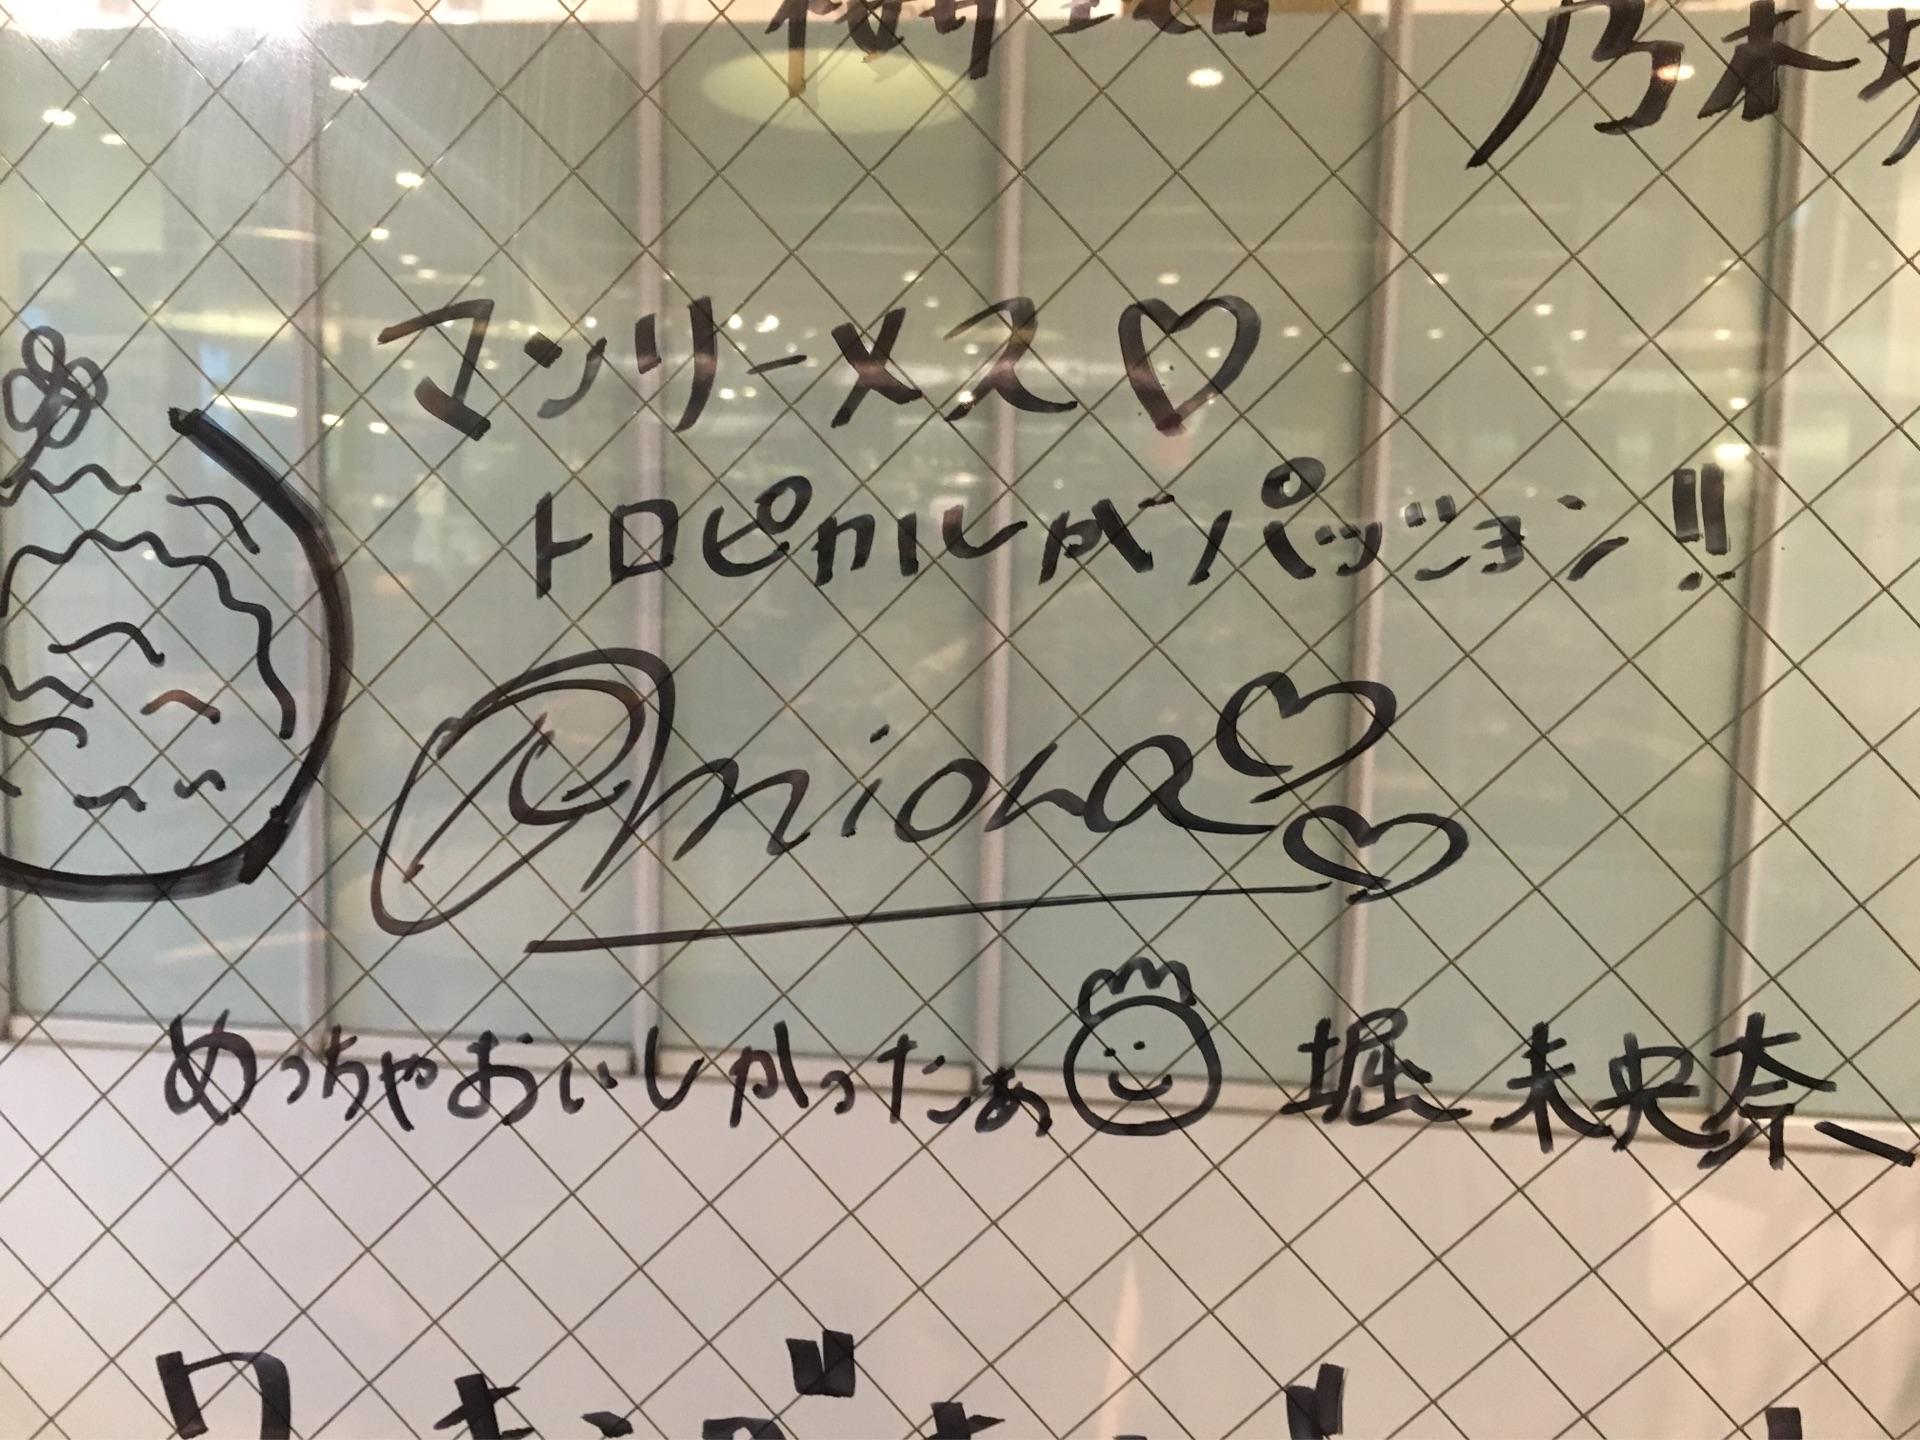 乃木坂
マンリーメス♡
トロピカルがパッション!!
miona♡♡
めっちゃおいしかったぁ 堀 未央奈